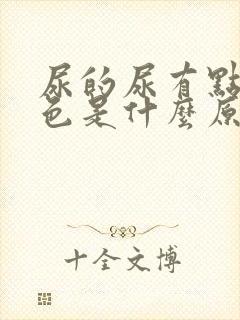 尿的尿有點
色是什麼原
十全文博